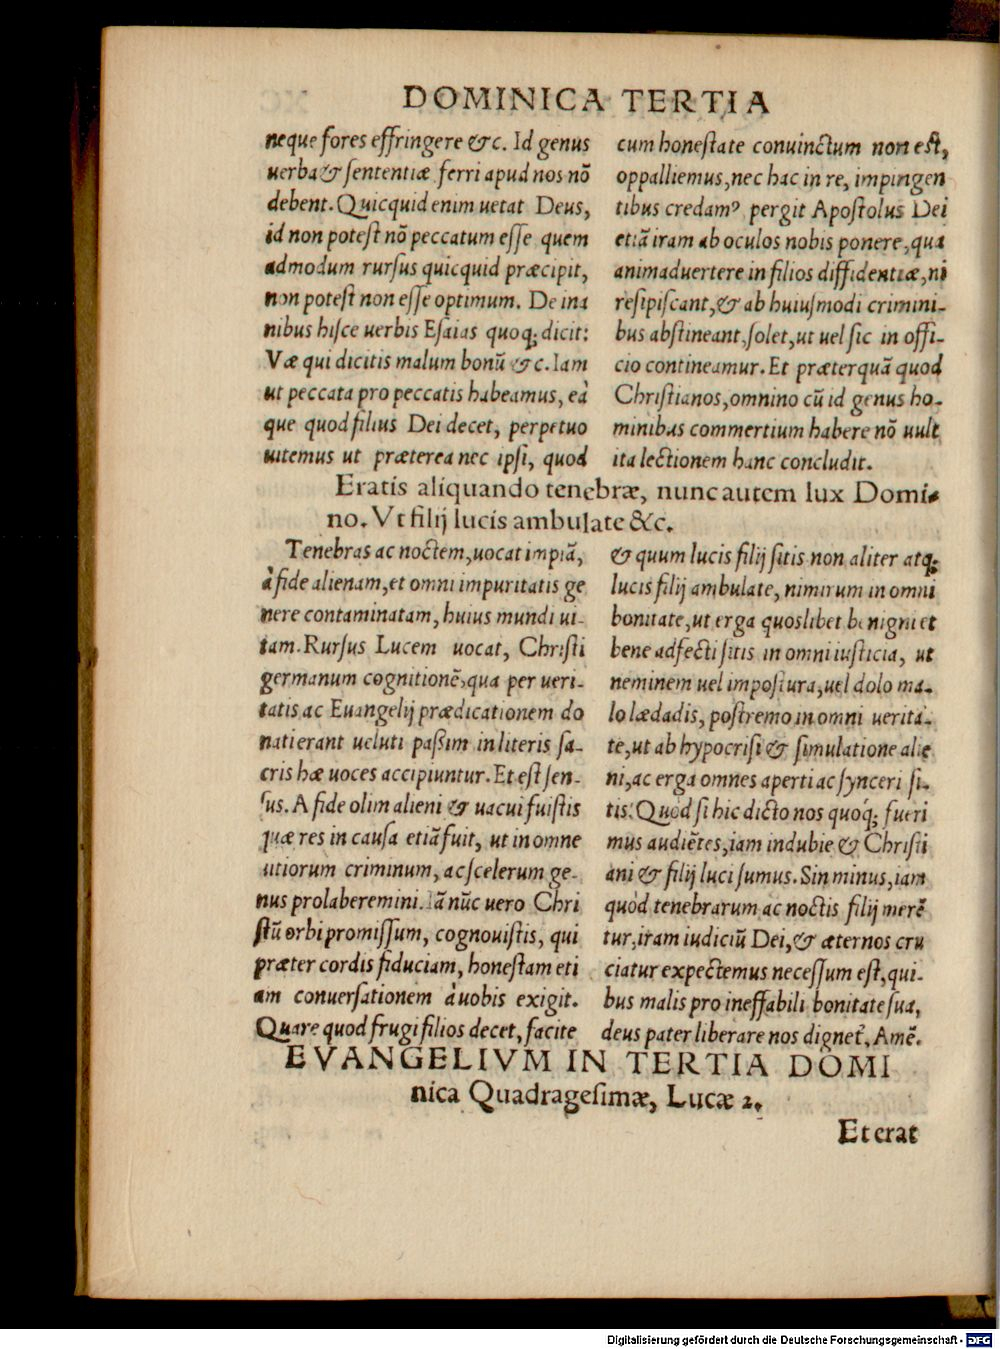 DOMINICA TERTIA
neque fores effringere &c. Id genus
uerba & sententiæ ferri apud nos nõ
debent. Quicquid enim uetat Deus,
id non potest nõ peccatum esse quem
admodum rursus quicquid præcipit,
non potest non esse optimum. De ina
nibus hisce uerbis Esaias quoq; dicit:
Væ qui dicitis malum bonũ &c. Iam
ut peccata pro peccatis habeamus, eà
que quod filius Dei decet, perpetuo
uitemus ut præterea nec ipsi, quod
cum honestate conuinctum non est,
oppalliemus, nec hac in re, impingen
tibus credamꝰ pergit Apostolus Dei
etiã iram ab oculos nobis ponere, qua
animaduertere in filios diffidentiæ, ni
resipiscant, & ab huiusmodi crimini-
bus abstineant, solet, ut uel sic in offi-
cio contineamur. Et præterquã quod
Christianos, omnino cũ id genus ho-
minibus commertium habere nõ uult
ita lectionem hanc concludit.
Eratis aliquando tenebræ, nunc autem lux Domi-
no. Vt filij lucis ambulate &c.
Tenebras ac noctem, uocat impiã,
à fide alienam, et omni impuritatis ge
nere contaminatam, huius mundi ui-
tam. Rursus Lucem uocat, Christi
germanum cognitionẽ, qua per ueri-
tatis ac Euangelij prædicationem do
nati erant ueluti passim in literis sa-
cris hæ uoces accipiuntur. Et est sen-
sus. A fide olim alieni & uacui fuistis
quæ res in causa etiã fuit, ut in omne
uitiorum criminum, ac scelerum ge-
nus prolaberemini. Iã nũc uero Chri
stũ orbi promissum, cognouistis, qui
præter cordis fiduciam, honestam eti
am conuersationem à uobis exigit.
Quare quod frugi filios decet, facite
& quum lucis filij sitis non aliter atq;
lucis filij ambulate, nimirum in omni
bonitate, ut erga quoslibet benigni et
bene adfecti sitis in omni iusticia, ut
neminem uel impostura, uel dolo ma-
lo lædadis, postremo in omni uerita-
te, ut ab hypocrisi & simulatione alie
ni, ac erga omnes aperti ac synceri si-
tis. Quod si hic dicto nos quóq; fueri
mus audiẽtes, iam indubie & Christi
ani & filij luci sumus. Sin minus, iam
quòd tenebrarum ac noctis filij merẽ
tur, iram iudiciũ Dei, & æternos cru
ciatur expectemus necessum est, qui-
bus malis pro ineffabili bonitate sua,
deus pater liberare nos dignet', Amẽ.
EVANGELIVM IN TERTIA DOMI
nica Quadragesimæ, Lucæ 2.
Et erat
Digitalisierung gefördert durch die Deutsche Forschungsgemeinschaft - DFG